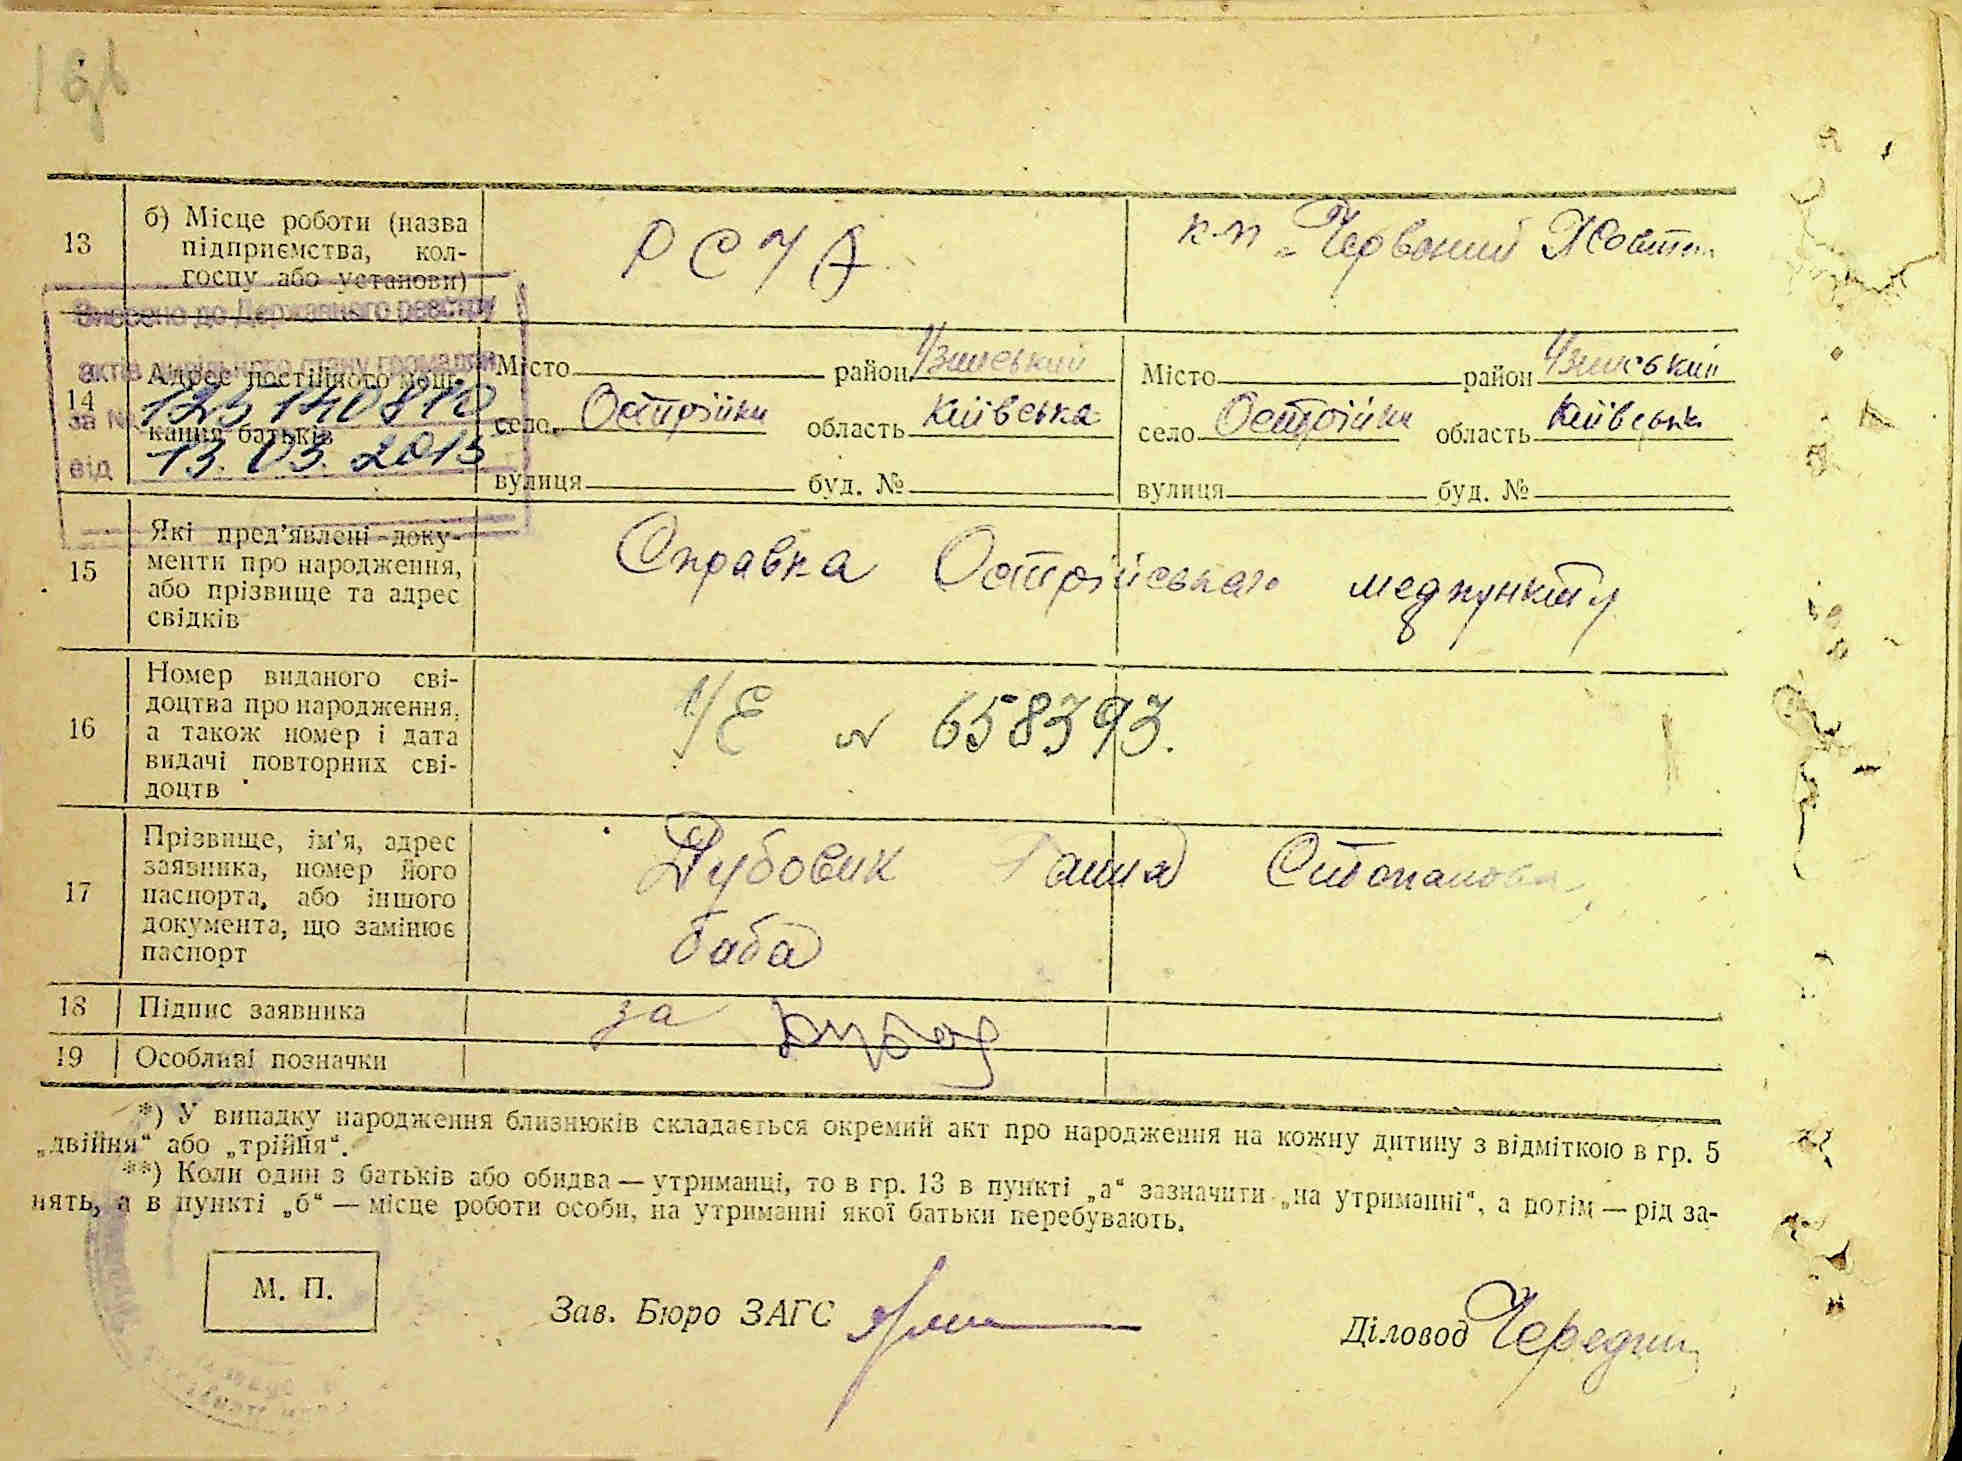 13
б) Місце роботи (назва
підприємства, кол-
госпу або установи)
РСЧА
к-п „Червоний Жовтен
Внесено до Державного реєстру
актів цивільного стану громадян
за №
від
13.03.2013
14
Адрес постійного меш-
кання батьків
Місто район Узинський
село Острійки область Київська
вулиця буд. №
Місто район Узинський
село Острійки область Київська
вулиця буд. №
15
Які пред’явлені доку-
менти про народження,
або прізвище та адрес
свідків
Справка Острійського медпункту
16
Номер виданого сві-
доцтва про народження,
а також номер і дата
видачі повторних сві-
доцтв
УЕ № 658393.
17
Прізвище, ім’я, адрес
заявника, номер його
паспорта, або іншого
документа, що замінює
паспорт
Дубовик Ганна Степанова
баба
18
Підпис заявника
за
19
Особливі позначки
*) У випадку народження близнюків складається окремий акт про народження на кожну дитину з відміткою в гр. 5
„двійня“ або „трійня“.
**) Коли один з батьків або обидва — утриманці, то в гр. 13 в пункті „а“ зазначити „на утриманні“, а потім — рід за-
нять, а в пункті „б“ — місце роботи особи, на утриманні якої батьки перебувають.
М. П.
Зав. Бюро ЗАГС
Діловод